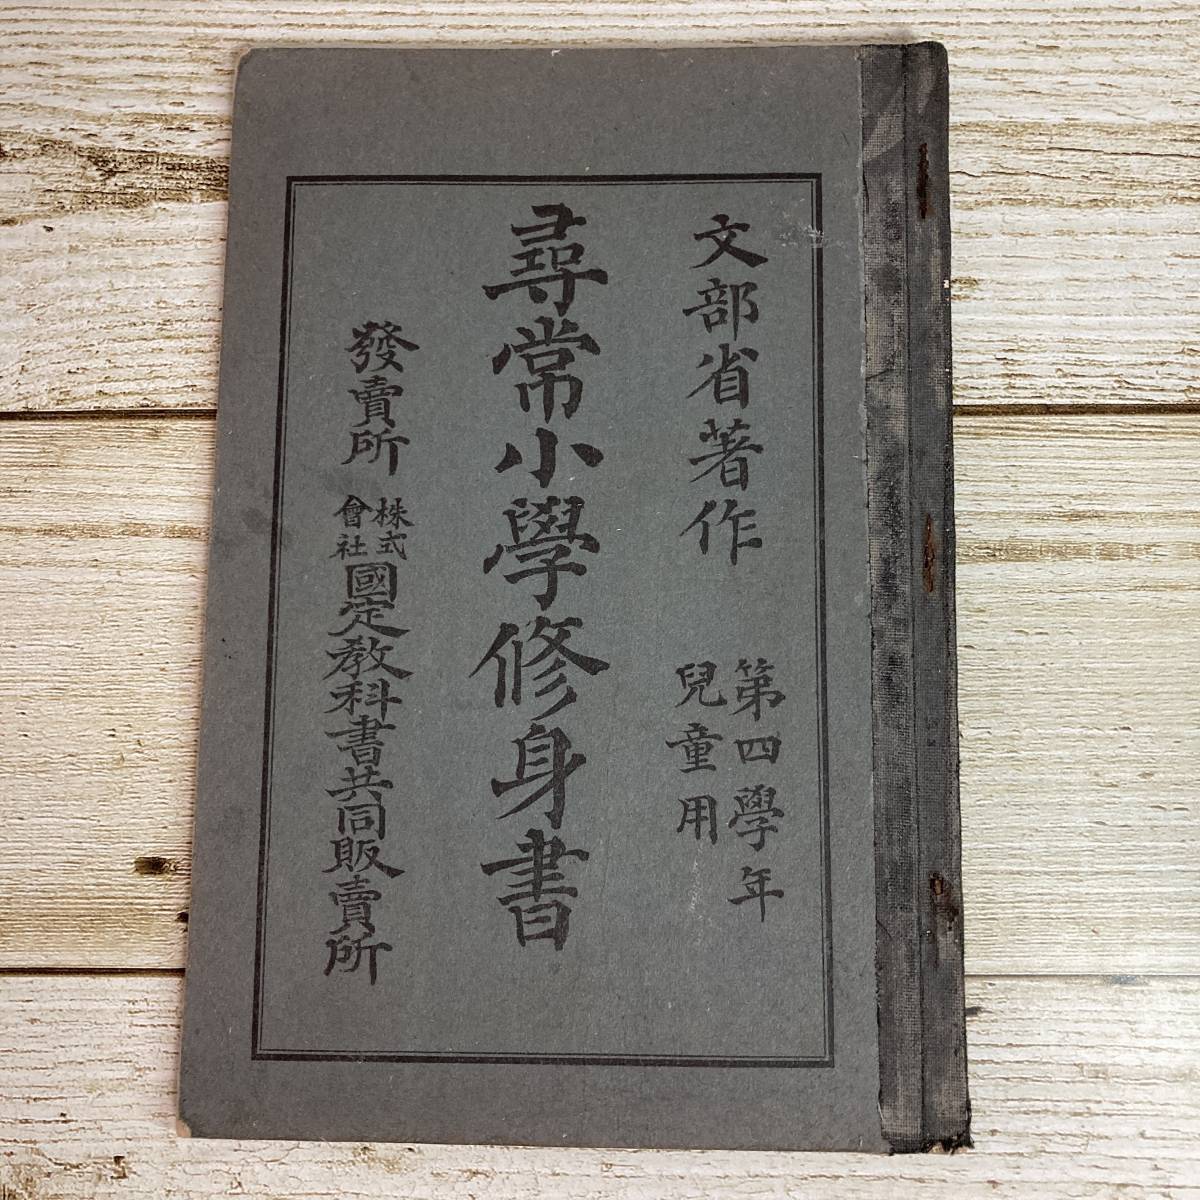 文部省著作
第四學年
兒童用
尋常小學修身書
發賣所 株式會社 國定教科書共同販賣所